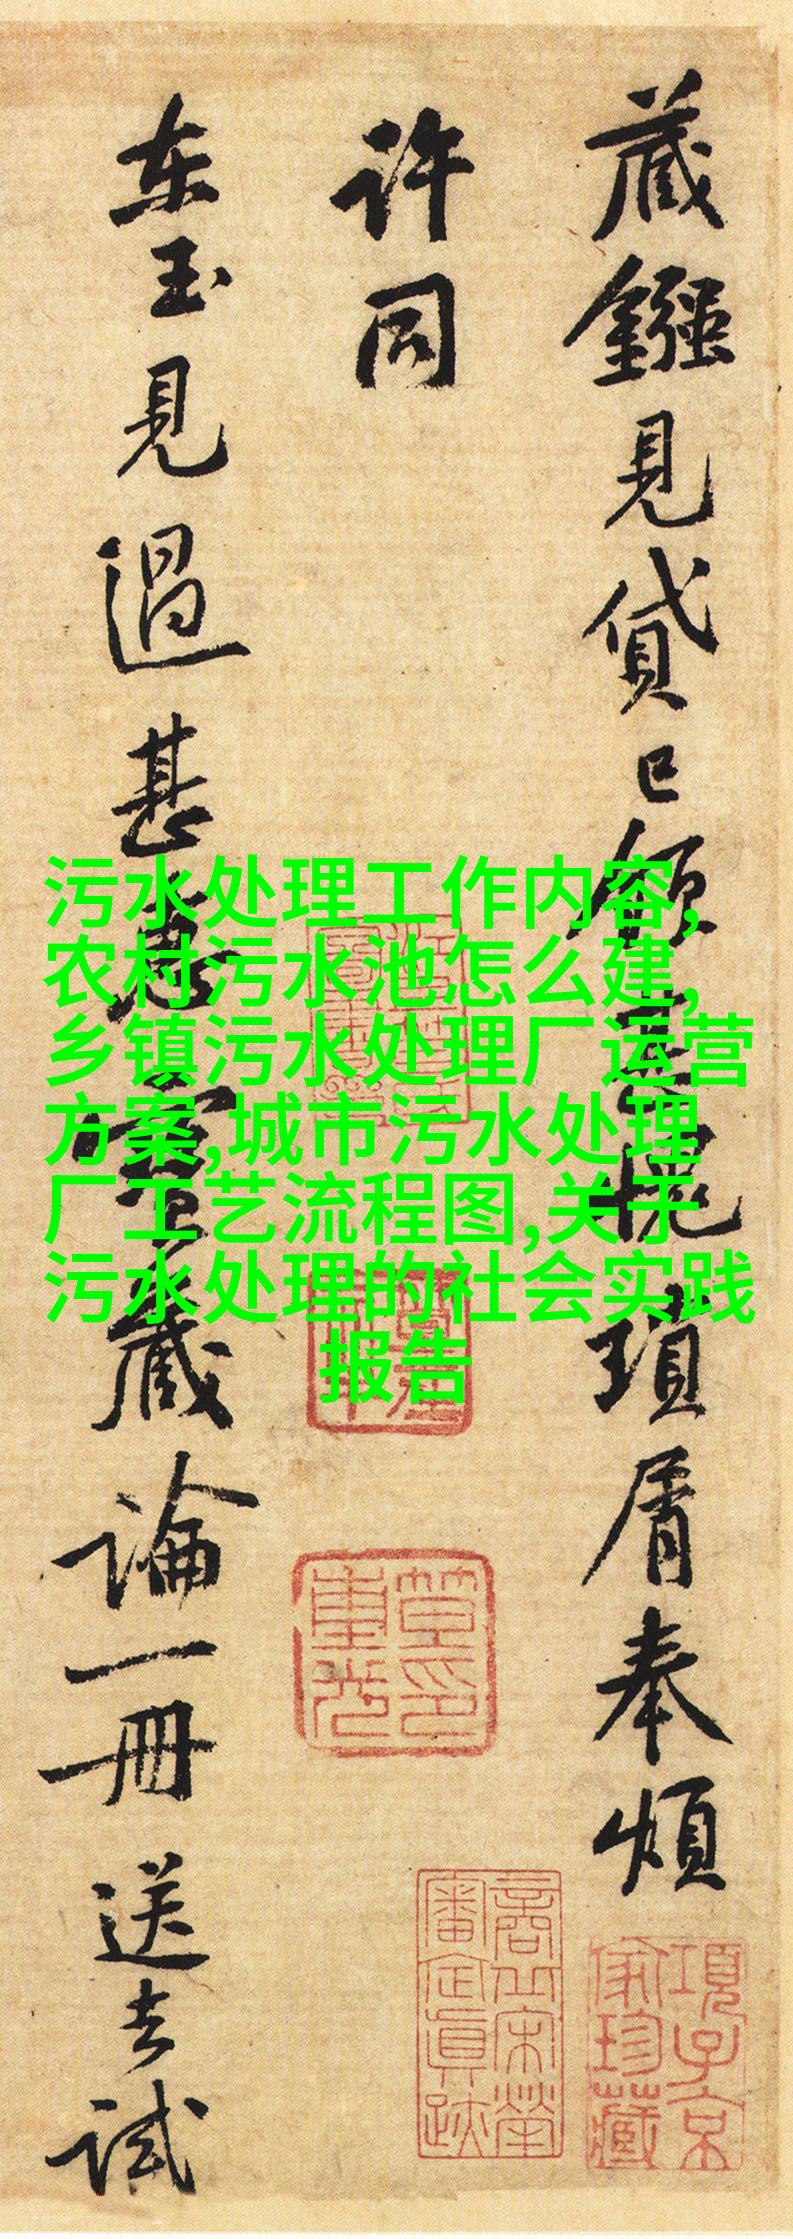 藏鏹見貸已領甚愧瑣屑奉煩
許同
东玉見過甚喜雪藏論一冊送去試
污水处理工作内容,
农村污水池怎么建,
乡镇污水处理厂运营
方案,城市污水处理
厂工艺流程图,关于
污水处理的社会实践
报告
項子京
家珍藏